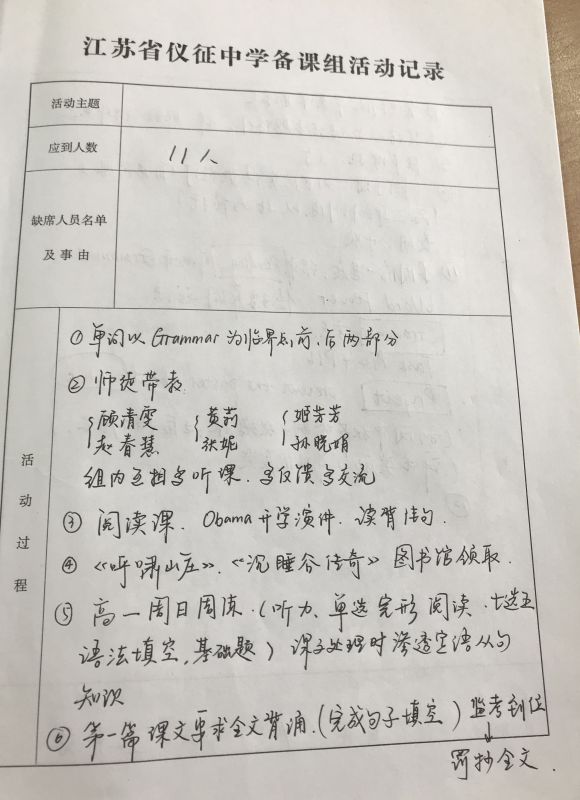 江苏省仪征中学备课组活动记录
活动主题
应到人数 11人
缺席人员名单
及事由
活动过程
①单词以 Grammar 为临界点前,后两部分
②师徒带教:
顾清雯 黄莉 姬芳芳
赵春慧 张妮 孙晓娟
组内互相多听课.多反馈多交流
③ 阅读课. Obama 开学演件. 读背佳句.
④ 《呼啸山庄》.《沉睡谷传奇》 图书馆领取.
⑤ 高一周日周练.(听力、单选 完形 阅读.七选五
语法填空,基础题) 课文处理时渗透定语从句
知识
⑥ 第一篇课文要求全文背诵.(完成句子填空) 监考到位
↓
罚抄全文.